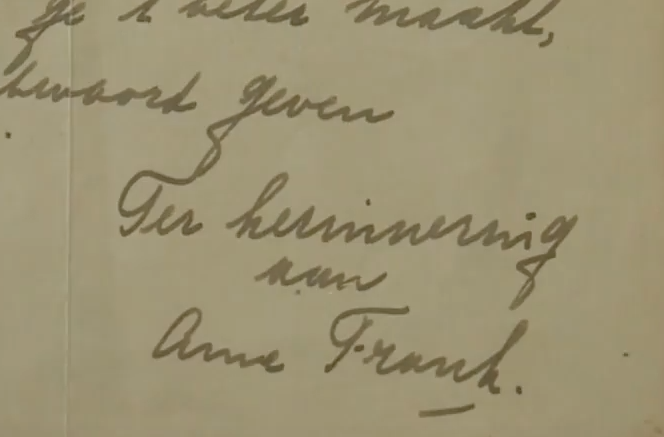 ge 't beter maakt,
antwoord geven
Ter herinnering
aan
Anne Frank.